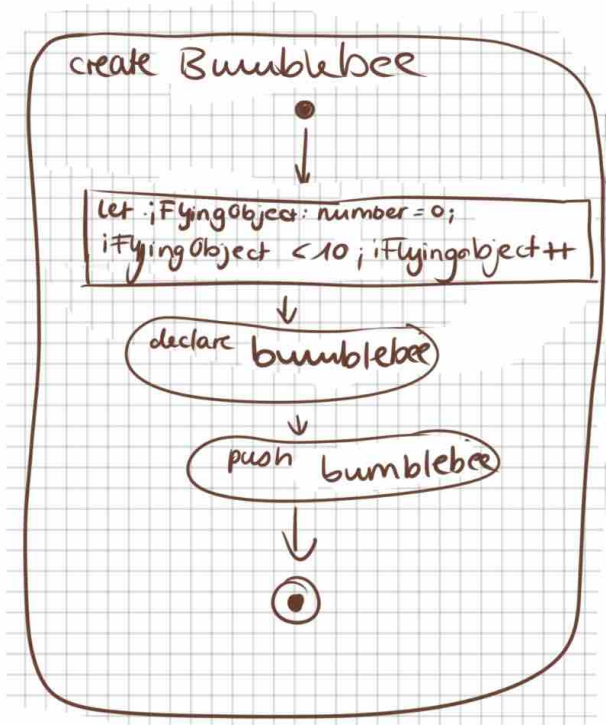 create Bumblebee
let iFlyingObject: number = 0;
iFlyingObject < 10; iFlyingobject++
declare bumblebee
push bumblebee